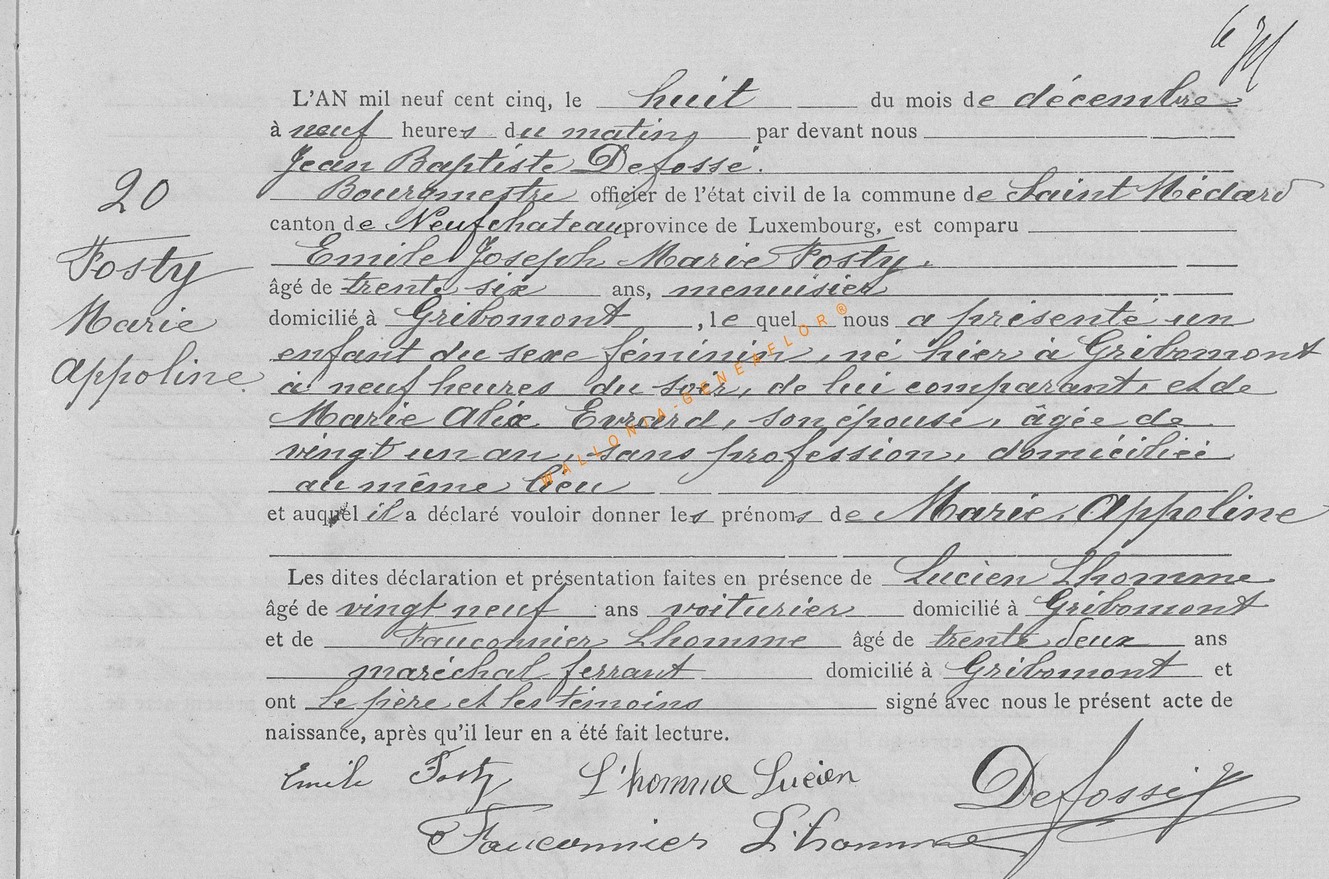 L'AN mil neuf cent cinq, le huit du mois de décembre
à neuf heures du matin par devant nous
Jean Baptiste Defossé.
Bourgmestre officier de l'état civil de la commune de Saint Médard
20
canton de Neufchateau province de Luxembourg, est comparu
Fosty
Emile Joseph Marie Fosty,
âgé de trente six ans, menuisier
Marie
domicilié à Gribomont, le quel nous a présenté un
enfant du sexe féminin, né hier à Gribomont
Appoline
à neuf heures du soir, de lui comparant, et de
Marie Alix Evrard, son épouse, âgée de
vingt un an, sans profession, domiciliée
au même lieu
et auquel il a déclaré vouloir donner les prénoms de Marie, Appoline
Les dites déclaration et présentation faites en présence de Lucien Lhomme
âgé de vingt neuf ans voiturier domicilié à Gribomont
et de Fauconnier Lhomme âgé de trente deux ans
maréchal ferrant domicilié à Gribomont et
ont le père et les témoins signé avec nous le présent acte de
naissance, après qu'il leur en a été fait lecture.
Emile Fosty L'homme Lucien Defossé
Fauconnier L'homme
WALLONIA-GENEAFLOR®